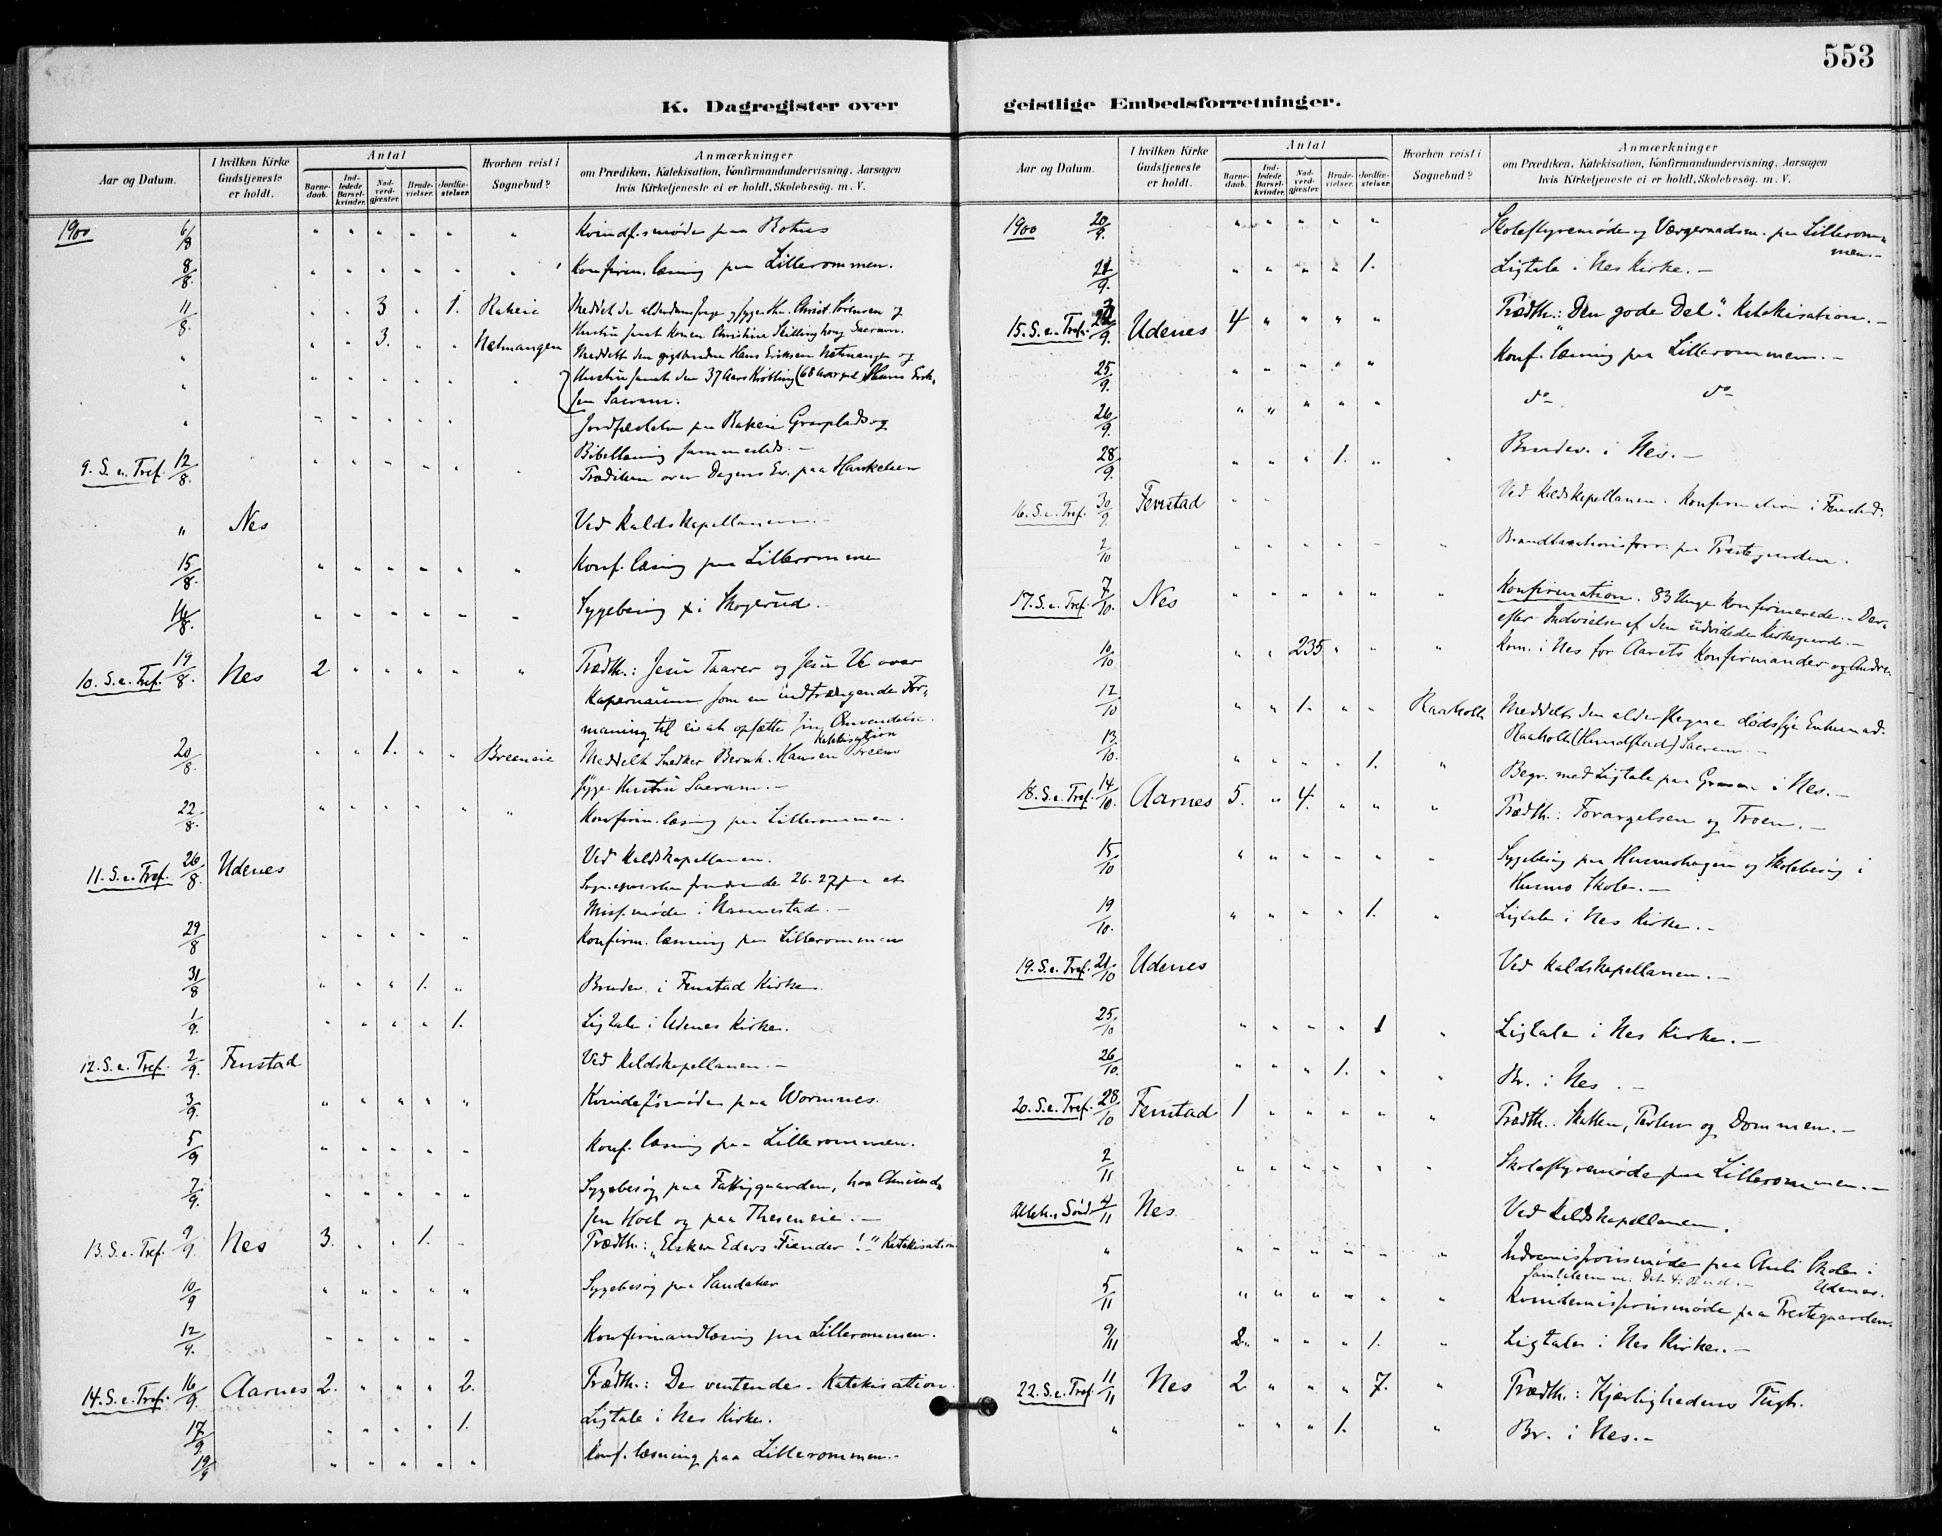 553
K. Dagregister over
geistlige Embedsforretninger.
Aar og Datum.
I hvilken Kirke Gudstjeneste er holdt.
Antal
Barne-daab.
Ind-ledede Barsel-kvinder.
Nad-verd-gjæster.
Brude-vielser.
Jordfæ-stelser.
Hvorhen reist i Sognebud?
Anmærkninger
om Prædiken, Katekisation, Konfirmandundervisning, Aarsagen
hvis Kirketjeneste ei er holdt, Skolebesøg. m. V.
1900 6/8 " " " " " " paa Rotnes
8/8. " " " " " " Konfirm. læsning paa Lillerommen.
11/8. " " 3 " 1. Rakeie Meddelt de og Christ. Sørensen og
Hustru samt Konen Christine Sacram.
" " " 3. " " Netmangen Meddelt den Hans Eriksen Netmangen og
" Hustru samt den 37 Aars Krøbling (68 Hans Erik-
sen Sacram.
" Jordfæstelse paa Rakeie Gravplads og
Bibellæsning sammesteds. -
9. S. e. Tref. 12/8. over Dagens Ev. paa
" Nes Ved Kaldskapellanen. -
15/8. " " " " " " Konf. læsning paa Lillerommen
16/8. " " " " " " Sygebesøg i Skogerud. -
10. S. e. Tref. 19/8. Nes 2 " " " " " Prædk.: Jesu Taarer og Jesu Ve over
Kapernaum som en indtrængende For-
maning til ei at opsætte sin Omvendelse.
Katekisation
20/8. " " 1. " " Breeneie Meddelt Snedker Bernh. Hansen
syge Hustru Sacram. -
22/8. " " " " " " Konfirm. læsning paa Lillerommen.
11. S. e. Tref. 26/8. Udenes Ved Kaldskapellanen.
Sognepresten 26. 27 paa et
Miss. møde i Nannestad. -
29/8 " " " " " Konfirm. læsning paa Lillerommen
31/8 " " " 1. " Brudev. i Fenstad Kirke.
1/9. " " " " 1. Ligtale i Udenes Kirke.
12. S. e. Tref. 2/9. Fenstad Ved Kaldskapellanen. -
3/9. " " " " " paa Wormnes.
5/9 " " " " " Konf. læsning paa Lillerommen.
7/9. " " " " " Sygebesøg paa Fattiggaarden, hos Amund-
sen Hoel og paa Theseneie. -
13. S. e. Tref. 9/9. Nes 3. " " 1. " Prædk.: "Elsker Eders Fiender!" Katekisation
10/9 " " " " " Sygebesøg paa Sandaker
12/9. " " " " " Konfirmandlæsning paa Lillerommen.
14. S. e. Tref. 16/9. Aarnes 2. " " " 2. Prædk.: De ventende. Katekisation.
17/9. " " " " 1. Ligtale i Nes Kirke.
19/9 " " " " " Konf. læsning paa Lillerommen. -
Aar og Datum.
I hvilken Kirke Gudstjeneste er holdt.
Antal
Barne-daab.
Ind-ledede Barsel-kvinder.
Nad-verd-gjæster.
Brude-vielser.
Jordfæ-stelser.
Hvorhen reist i Sognebud?
Anmærkninger
om Prædiken, Katekisation, Konfirmandundervisning, Aarsagen
hvis Kirketjeneste ei er holdt, Skolebesøg. m. V.
1900 20/9. " " " " " Skolestyremøde og Værgeraadsm. paa Lillerom-
men. -
21/9. " " " " 1. Ligtale i Nes Kirke. -
15. S. e. Tref. 23/9. Udenes 4 " " " " Prædk.: "Den gode Del". Katekisation. -
25/9. " " " " " Konf. læsning paa Lillerommen. -
26/9. " " " " " do do
28/9. " " " 1. " Brudev. i Nes. -
16. S. e. Tref. 30/9. Fenstad Ved Kaldskapellanen. Konfirmation i Fenstad.
2/10 " " " " " Brandtaxtionsforr. paa Prestegaarden.
17. S. e. Tref. 7/10. Nes " " " " " " Konfirmation. 83 Unge konfirmerede. - Der-
efter Indvielse af den udvidede Kirkegaard. -
10/10 " " 235 " " " Kom. i Nes for Aarets Konfirmander og Andre
12/10 " " 1. " " Raaholt Meddelt den dødssyge Enkemad.
Raaholt (Hundstad) Sacram. -
13/10. " " " " 1. " Begr. med Ligtale paa Graven i Nes. -
18. S. e. Tref. 14/10. Aarnes 5. " 4. " " " Prædk.: Forargelsen og Troen. -
15/10 " " " " " " Sygebesøg paa Husmohagen og Skolebesøg i
Husmo Skole. -
19/10. " " " " 1. " Ligtale i Nes Kirke. -
19. S. e. Tref. 21/10 Udenes Ved Kaldskapellanen. -
25/10 " " " " 1 " Ligtale i Nes Kirke. -
26/10. " " " 1. " " Br. i Nes. -
20. S. e. Tref. 28/10 Fenstad 1 " " " " " Prædk.: Skatten, og Dommen. -
2/11 " " " " " " Skolestyremøde paa Lillerommen. -
Alleh. Sønd. 4/11 Nes Ved Kaldskapellanen.
" " " " " " " Indremissionsmøde paa Auli Skole i
Udenes.
Samtaleem. m. Det 4. Bud. -
5/11 " " " " " " Kvindemissionsmøde paa Prestegaarden.
9/11 2. " " " 1. " Ligtale i Nes Kirke. -
22. S. e. Tref. 11/11 Nes 2 " " " 7. " Prædk.: Kjærlighedens Tugt.
" " " " 1. " Br. i Nes. -